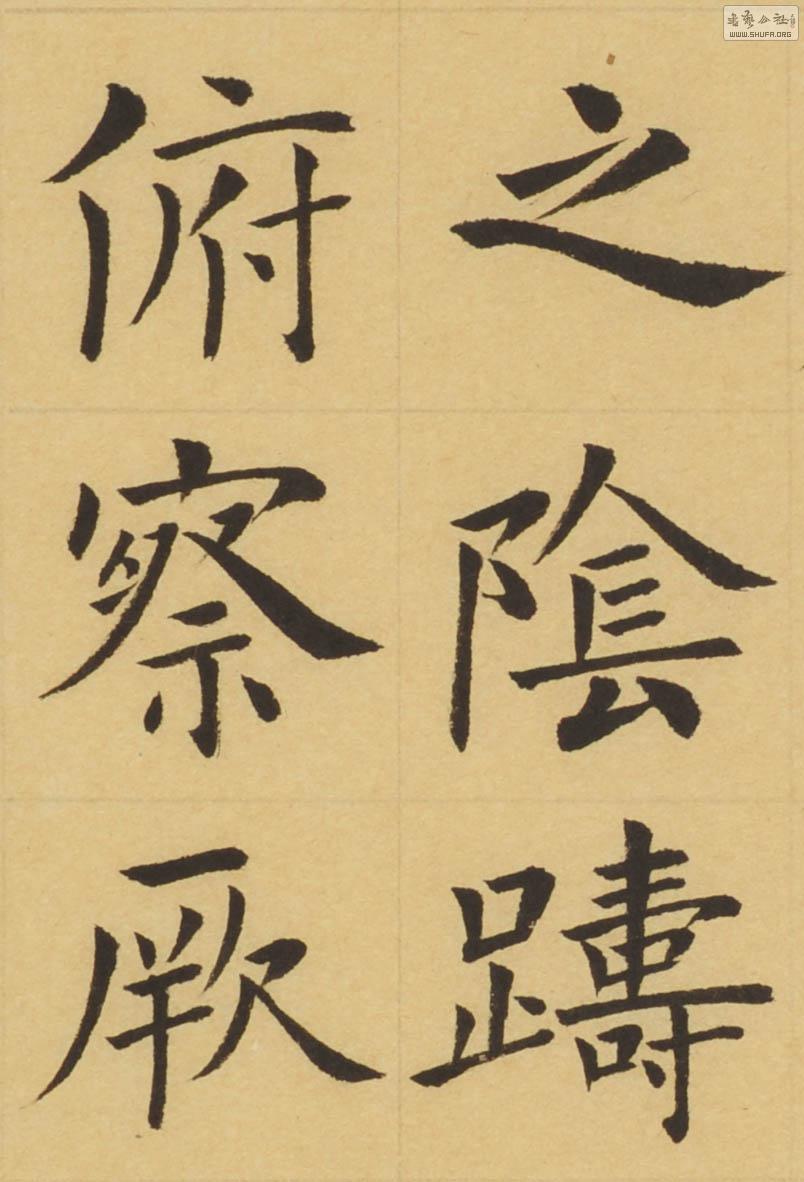 之陰躊
俯察厥
書藝公社
WWW.SHUFA.ORG